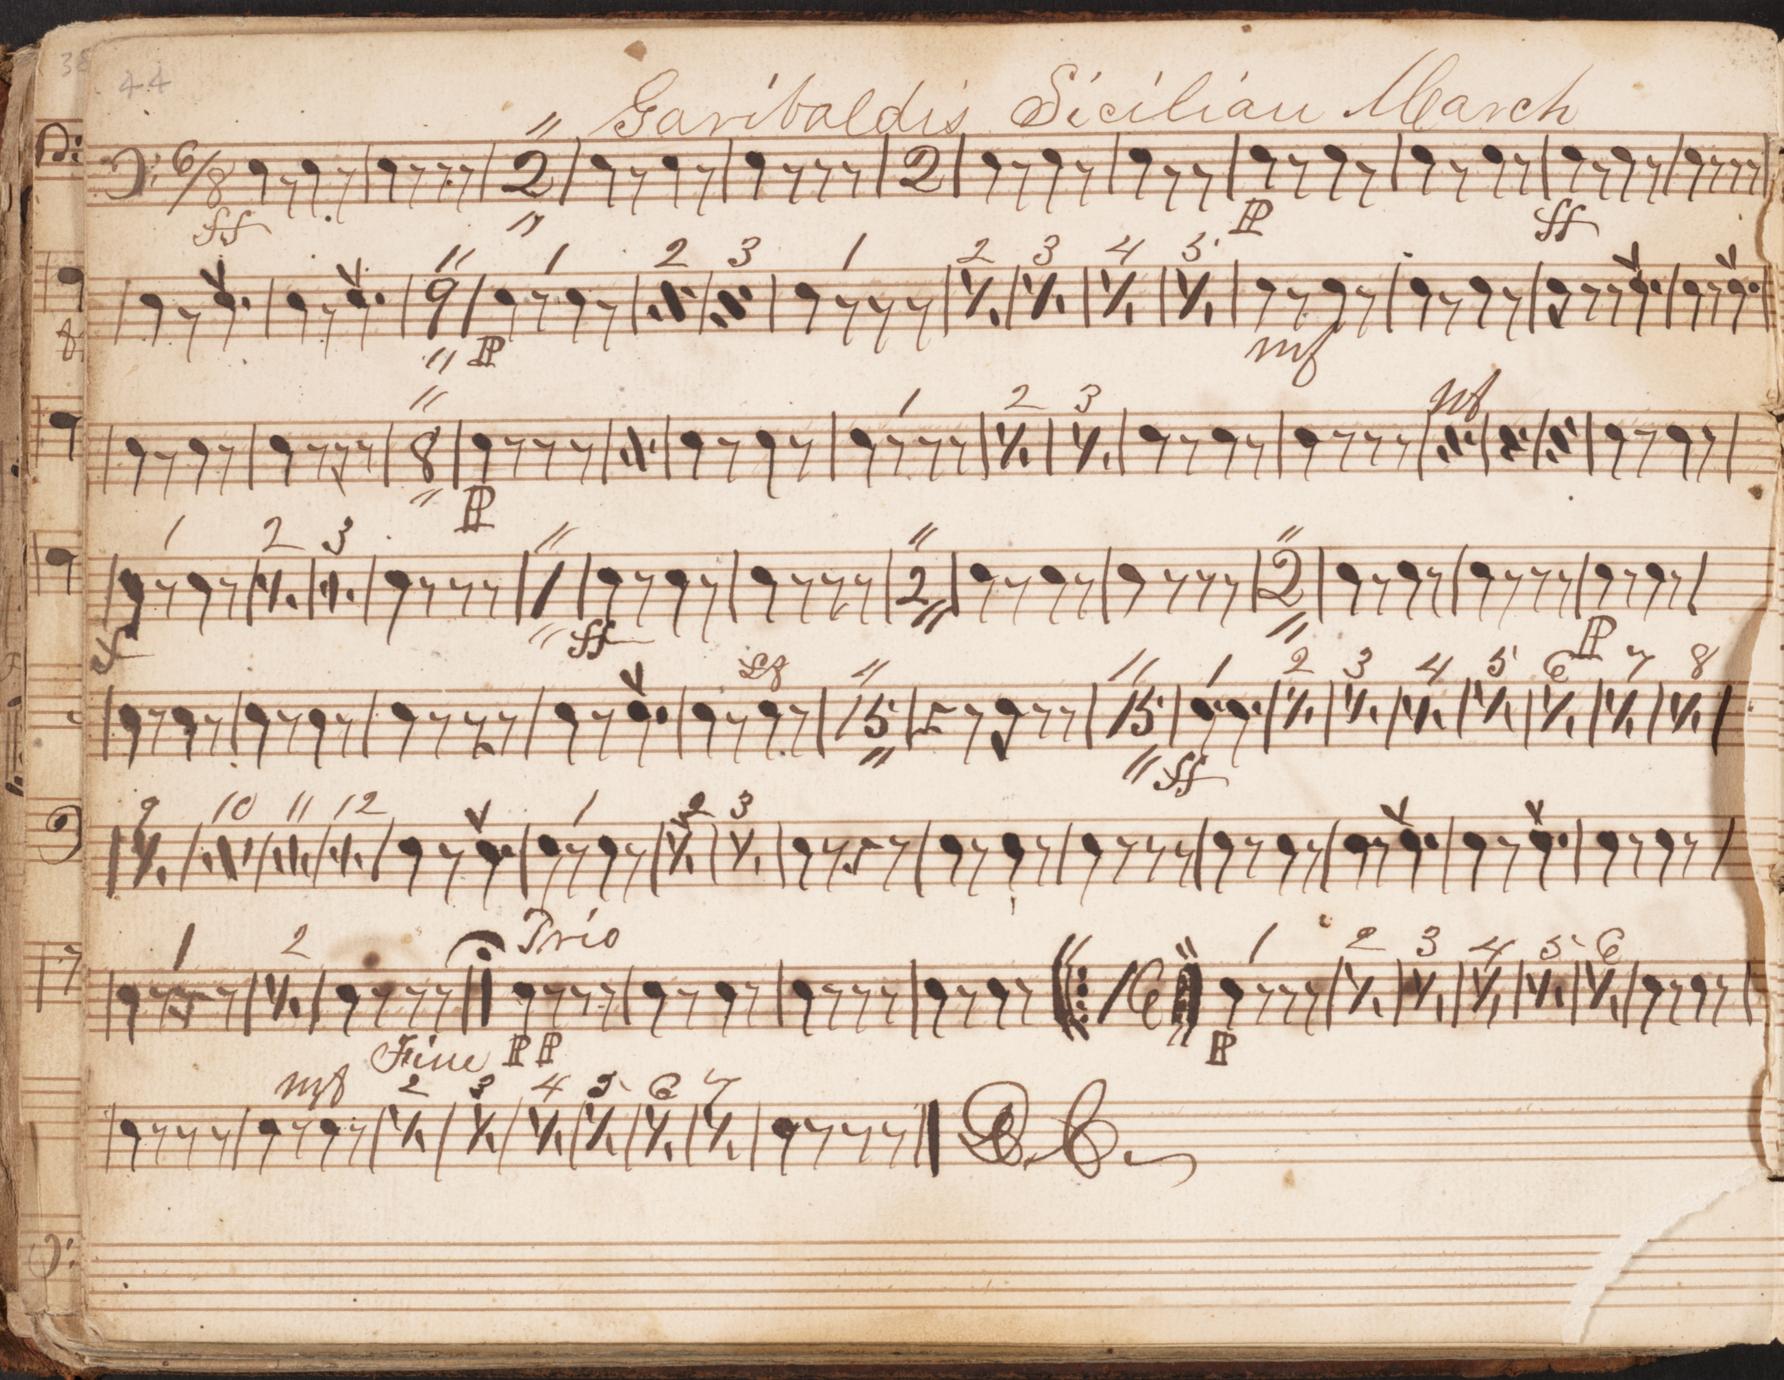 44
Garibaldis Sicilian March
6/8 2 2
ff P ff
1 2 3 1 2 3 4 5
9
P mf
1 2 3 mf
8
P
1 2 3
1 2 2
ff ff P
1 2 3 4 5 6 7 8
15 15
ff
9 10 11 12 1 2 3
Trio
1 2 1 2 3 4 5 6
16
Fine PP P
mf 2 3 4 5 6 7
D.C.